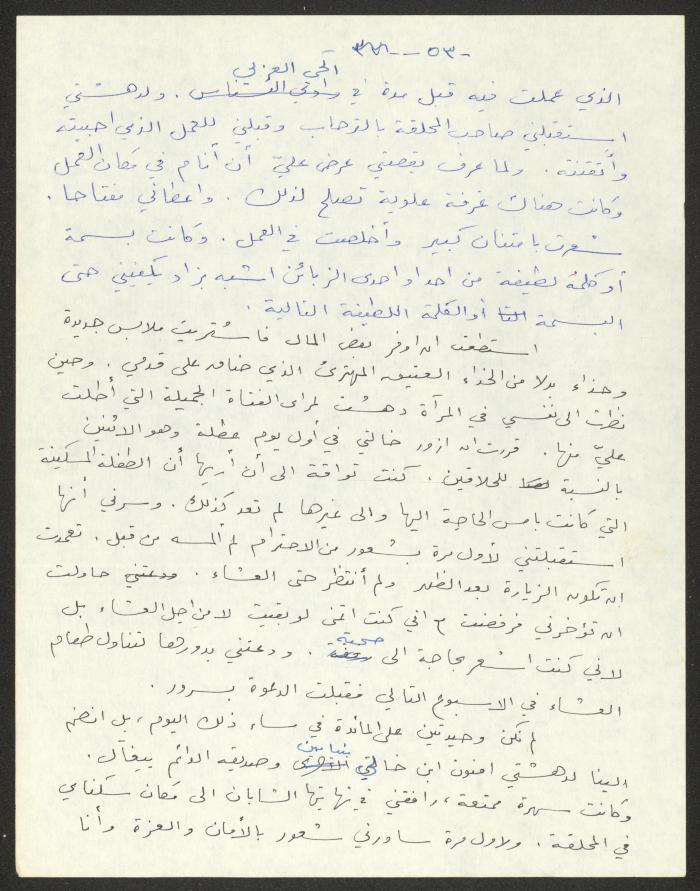 - ٥٣ -
الحي العربي
الذي عملت فيه قبل مدة في وادي النسناس . ولدهشتي
استقبلني صاحب المحلقة بالترحاب وقبلني للعمل الذي احببته
وأتقنته . ولما عرف بقصتي عرض عليّ أن أنام في مكان العمل
وكانت هناك غرفة علوية تصلح لذلك . واعطاني مفتاحا .
شعرت بامتنان كبير وأخلصت في العمل . وكانت بسمة
أو كلمة لطيفة من احد او احدى الزبائن اشبه بزاد يكفيني حتى
البسمة التا أو الكلمة اللطيفة التالية .
استطعت ان اوفر بعض المال فاشتريت ملابس جديدة
وحذاء بدلا من الحذاء العتيق المهترئ الذي ضاق على قدمي . وحين
نظرت الى نفسي في المرآة دهشت لمرأى الفتاة الجميلة التي أطلت
عليّ منها . قررت ان ازور خالتي في أول يوم عطلة وهو الاثنين
بالنسبة للحلاقين . كنت تواقة الى أن أريها أن الطفلة المسكينة
التي كانت بامس الحاجة اليها والى غيرها لم تعد كذلك . وسرني أنها
استقبلتني لأول مرة بشعور من الاحترام لم ألمسه من قبل . تعمدت
ان تكون الزيارة بعد الظهر ولم أنتظر حتى العشاء . ودعتني حاولت
ان تؤخرني فرفضت مع اني كنت اتمنى لو بقيت لا من اجل العشاء بل
لاني كنت اشعر بحاجة الى صحبة . ودعتني بدورها لتناول طعام
العشاء في الاسبوع التالي فقبلت الدعوة بسرور .
لم نكن وحيدتين على المائدة في مساء ذلك اليوم ، بل انضم
الينا لدهشتي امنون ابن خالتي بنيامين وصديقه الدائم ييغال .
وكانت سهرة ممتعة ، رافقني في نهايتها الشابان الى مكان سكناي
في المحلقة . ولاول مرة ساورني شعور بالأمان والعزة وأنا